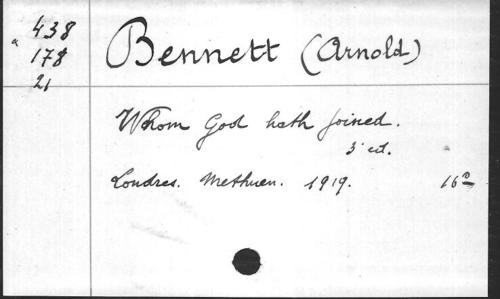 438
178
21
Bennett (Arnold)
Whom God hath joined.
3 ed.
Londres. Methuen. 1919. 16º